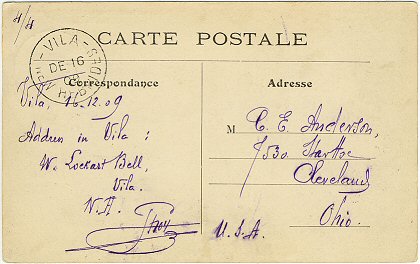 4/4
CARTE POSTALE
VILA
DE 16
09
Correspondance
Adresse
Vila, 16.12.09
Address in Vila :
W. Lockart Bell,
Vila.
N.H.
M C. E. Anderson,
7530
Cleveland
Ohio.
U.S.A.